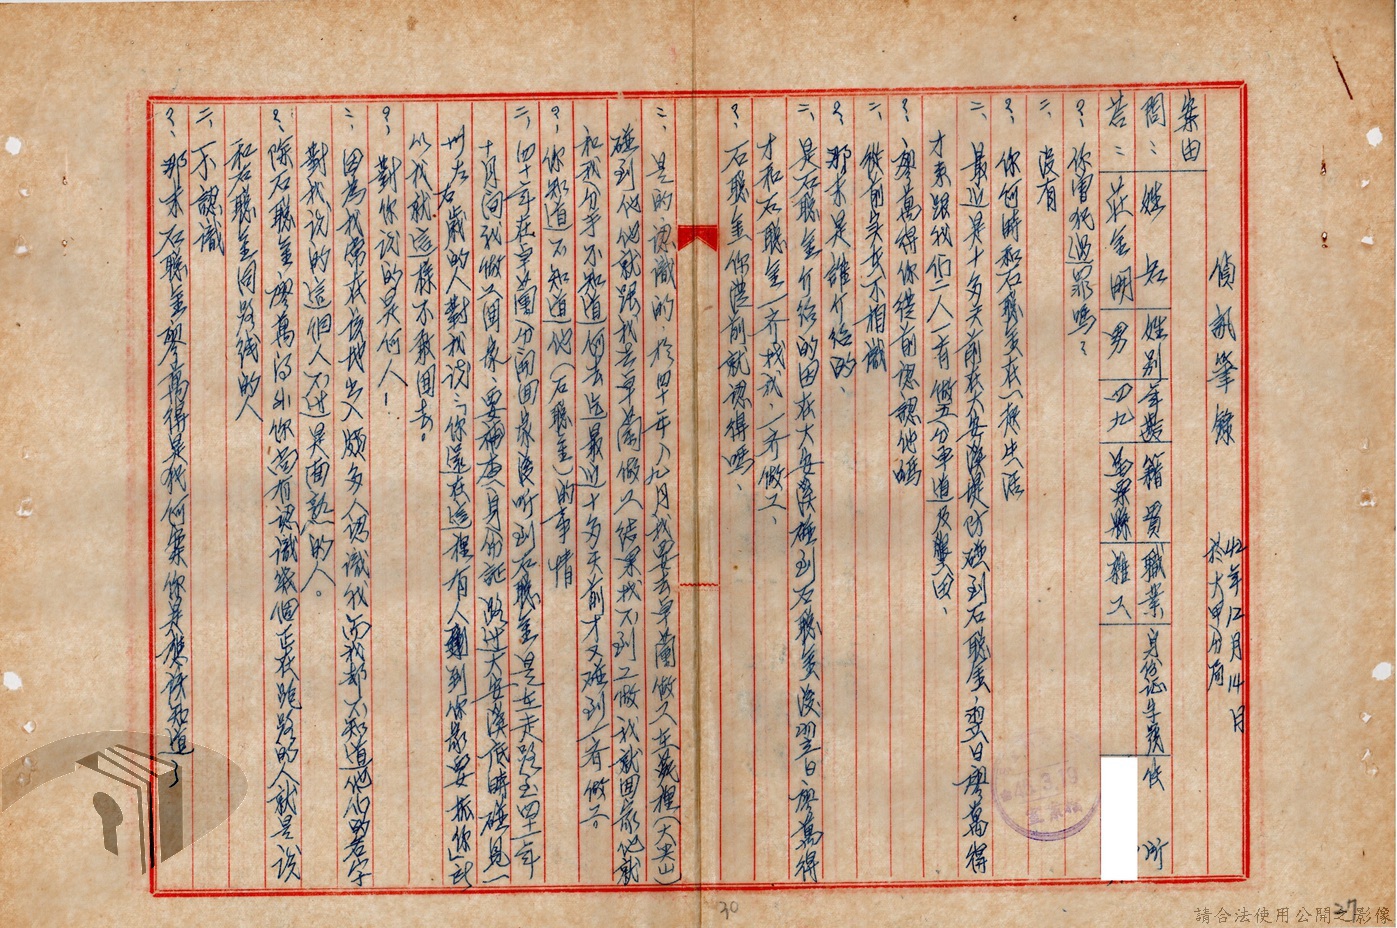 偵訊筆錄
42年12月14日
於大甲分局
案由
問：姓名 姓別 年歲 籍貫 職業 身份証号碼 住所
答：莊金明 男 四九 苗栗縣 雜工
？你曾犯過罪嗎？
二、沒有
？、你何時和石聰金在一起生活
二、最近是十多天前在大安溪堤防碰到石聰金，翌日廖萬得
才来跟我们二人一起做 分車道及糞田、
？廖萬得你從前認認他嗎
二、從前실我不相識
？、那末是誰介绍的、
二、是石聰金介绍的因在大安溪碰到石聰金後翌日廖萬得
才和石聰金一齐找我，一齐做工、
？、石聰金你從前就認得嗎、
二、是的，認識的，於四十一年八、九月我要去卓蘭做工在義裡(大尖山)
碰到他他就跟我去卓蘭做工結果找不到工做我就回家他就
和我分手不知道何去迄最近十多天前才又碰到一齊做工。
？、你知道不知道他(石聰金)的事情
二、四十一年在卓蘭分開回家後听到石聰金是在走路至四十二年
十月间我做工回家，要補查身份証路过大安溪底時碰見一
卅左右歲的人對我说：「你還在這裡有人到你家要抓你」所
以我就這樣不敢回去。
？、對你说的是何人！
二、因為我常在該地出入頗多人認識我而我都不知道他们的名字
對我说的這個人不过是面熟的人。
？、除石聰金廖萬得外你尚有認識幾個正在跑路的人就是说
和石聰金同路线的人
二、不認識
？、那末石聰金廖萬得是犯何案你是應該知道了
30
27
請合法使用公開之影像